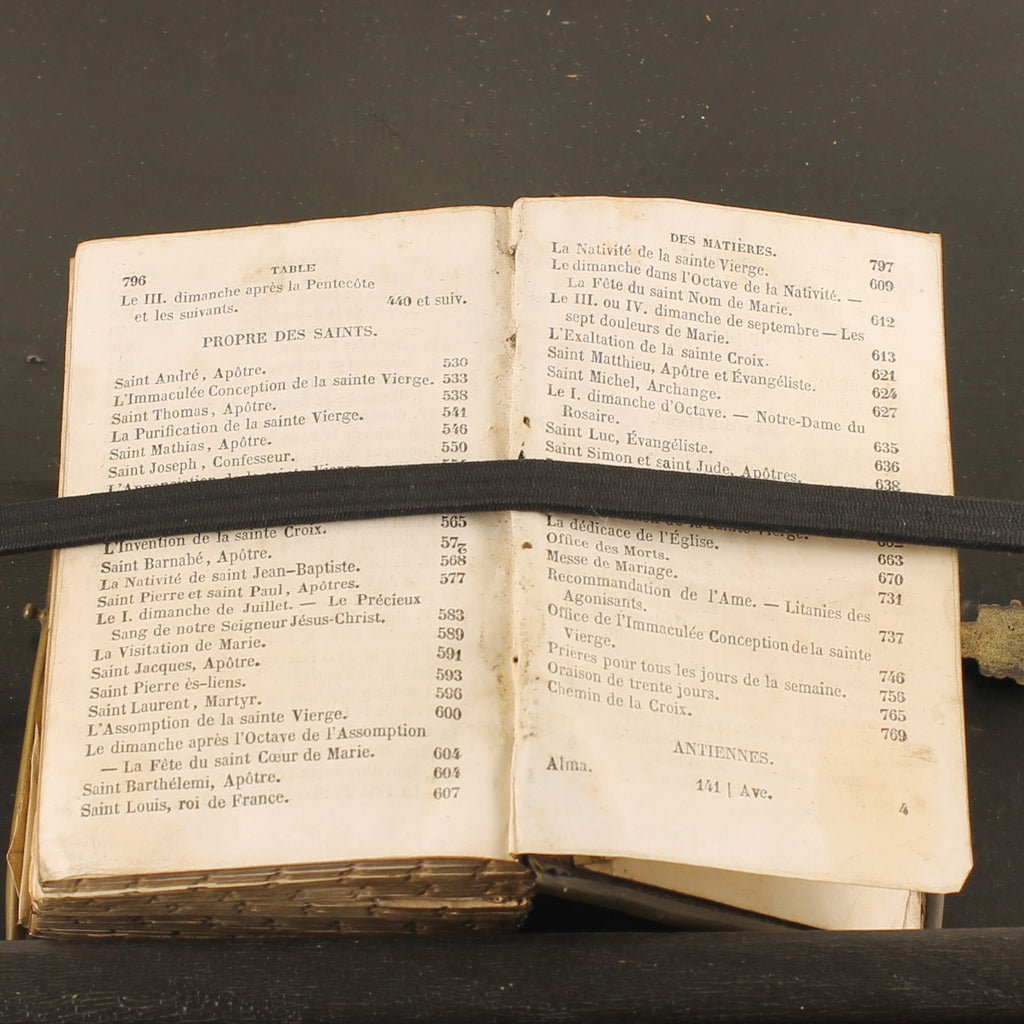 796
TABLE
Le III. dimanche après la Pentecôte
et les suivants. 440 et suiv.
PROPRE DES SAINTS.
Saint André, Apôtre. 530
L'Immaculée Conception de la sainte Vierge. 533
Saint Thomas, Apôtre. 538
La Purification de la sainte Vierge. 541
Saint Mathias, Apôtre. 546
Saint Joseph, Confesseur. 550
L'Annonciation de la sainte Vierge
L'Invention de la sainte Croix. 565
Saint Barnabé, Apôtre.
La Nativité de saint Jean-Baptiste. 568
Saint Pierre et saint Paul, Apôtres. 577
Le I. dimanche de Juillet. — Le Précieux
Sang de notre Seigneur Jésus-Christ. 583
La Visitation de Marie. 589
Saint Jacques, Apôtre. 591
Saint Pierre ès-liens. 593
Saint Laurent, Martyr. 596
L'Assomption de la sainte Vierge. 600
Le dimanche après l'Octave de l'Assomption
— La Fête du saint Cœur de Marie. 604
Saint Barthélemi, Apôtre. 604
Saint Louis, roi de France. 607
DES MATIÈRES.
797
La Nativité de la sainte Vierge. 609
Le dimanche dans l'Octave de la Nativité. —
La Fête du saint Nom de Marie. 612
Le III. ou IV. dimanche de septembre — Les
sept douleurs de Marie. 613
L'Exaltation de la sainte Croix. 621
Saint Matthieu, Apôtre et Évangéliste. 624
Saint Michel, Archange. 627
Le I. dimanche d'Octave. — Notre-Dame du
Rosaire. 635
Saint Luc, Évangéliste. 636
Saint Simon et saint Jude, Apôtres. 638
de la sainte Vierge.
La dédicace de l'Église. 663
Office des Morts. 670
Messe de Mariage. 731
Recommandation de l'Ame. — Litanies des
Agonisants. 737
Office de l'Immaculée Conception de la sainte
Vierge. 746
Prières pour tous les jours de la semaine. 756
Oraison de trente jours. 765
Chemin de la Croix. 769
ANTIENNES.
Alma. 141 | Ave. 4